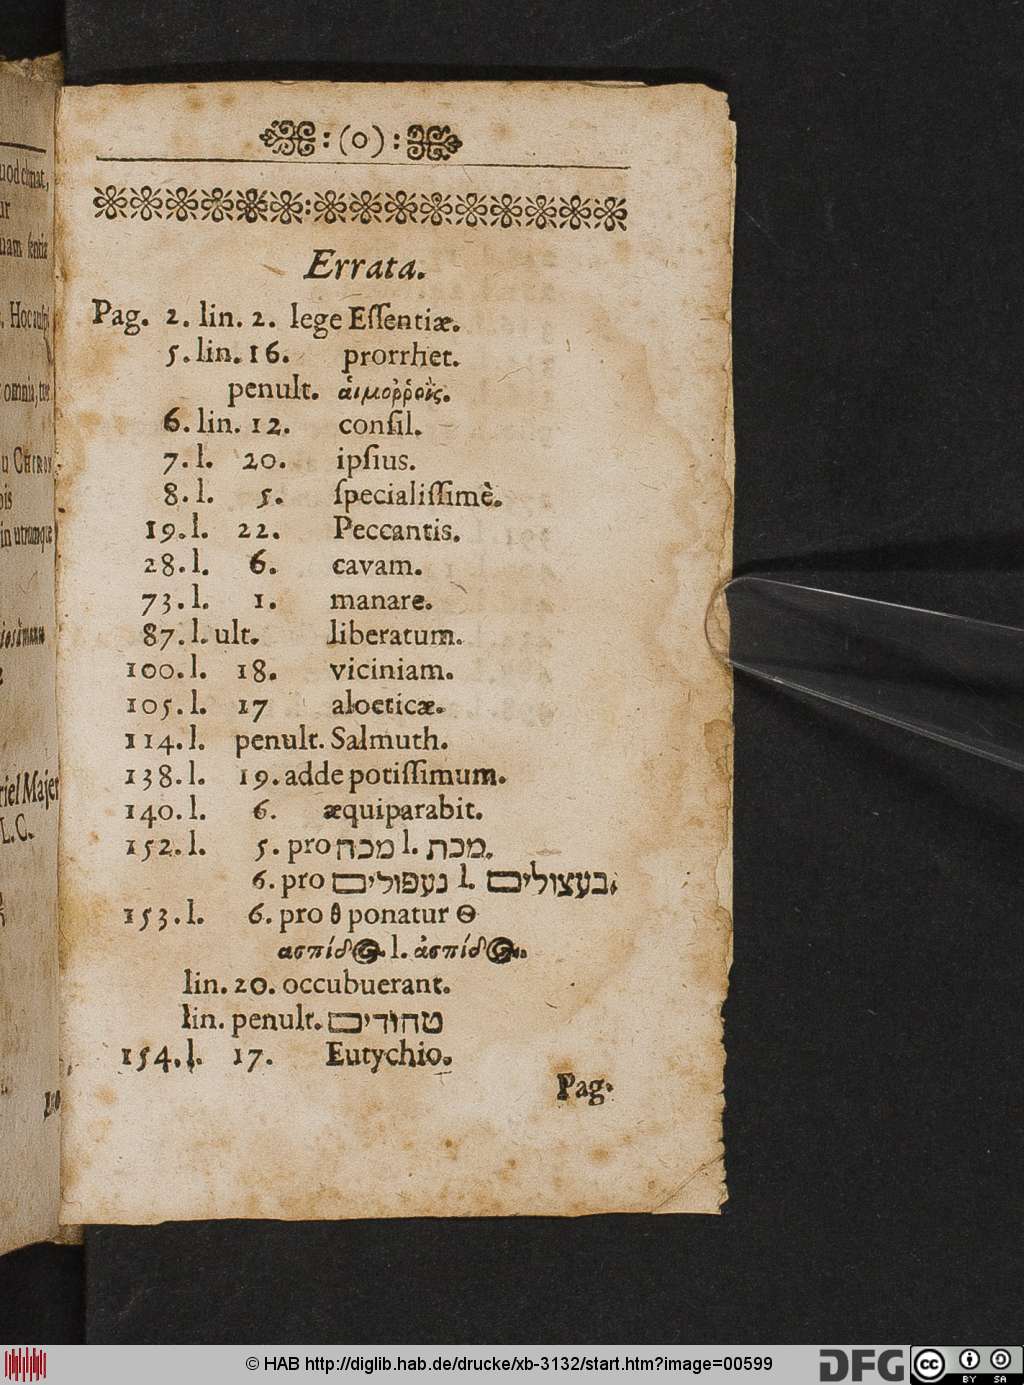 :(o):
Errata.
Pag. 2. lin. 2. lege Eſſentiæ.
5. lin. 16. prorrhet.
penult. αἱμοῤῥοῒς.
6. lin. 12. conſil.
7. l. 20. ipſius.
8. l. 5. ſpecialiſſimè.
19. l. 22. Peccantis.
28. l. 6. cavam.
73. l. 1. manare.
87. l. ult. liberatum.
100. l. 18. viciniam.
105. l. 17 aloeticæ.
114. l. penult. Salmuth.
138. l. 19. adde potiſſimum.
140. l. 6. æquiparabit.
152. l. 5. pro מכה l. מכת.
6. pro נעפולים l. בעצולים.
153. l. 6. pro θ ponatur Θ
ασπίδος l. ἀσπίδος.
lin. 20. occubuerant.
lin. penult. טחודים
154. l. 17. Eutychio.
Pag.
uod
uam
Hoc
omnia,
u CHIRON
in utrumque
riel Majer
L. C.
© HAB http://diglib.hab.de/drucke/xb-3132/start.htm?image=00599
DFG
cc BY SA